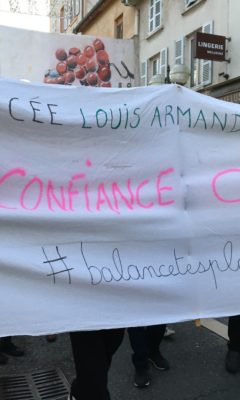 LINGERIE
CÉE LOUIS ARMAND
CONFIANCE
#balancetespl